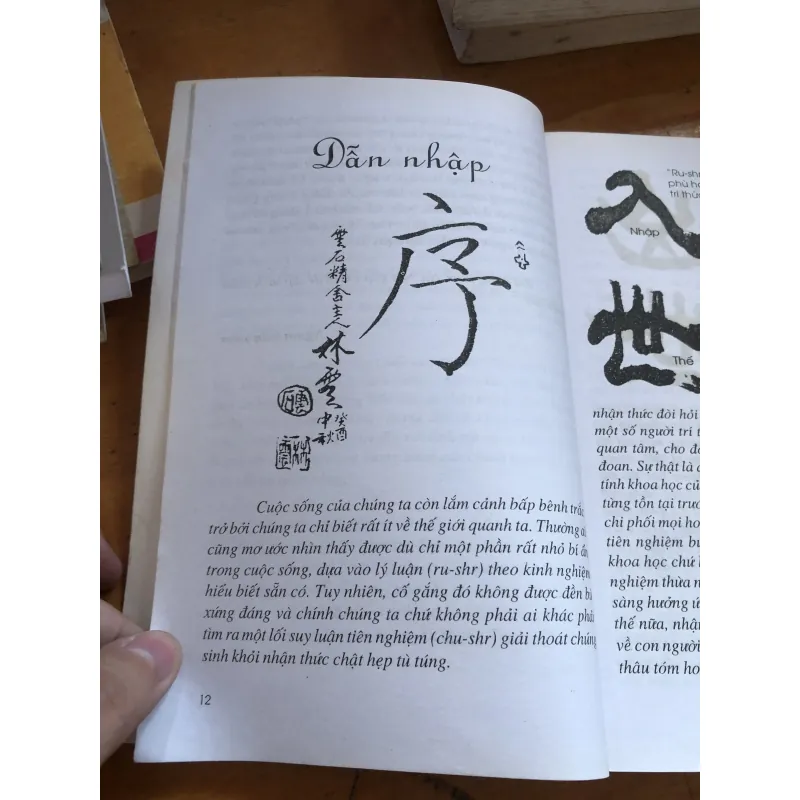 Dẫn nhập
序
雲石精舍主人
林雲
癸酉
中秋
Cuộc sống của chúng ta còn lắm cảnh bấp bênh trắc
trở bởi chúng ta chỉ biết rất ít về thế giới quanh ta. Thường ai
cũng mơ ước nhìn thấy được dù chỉ một phần rất nhỏ bí ẩn
trong cuộc sống, dựa vào lý luận (ru-shr) theo kinh nghiệm
hiểu biết sẵn có. Tuy nhiên, cố gắng đó không được đền bù
xứng đáng và chính chúng ta chứ không phải ai khác phải
tìm ra một lối suy luận tiên nghiệm (chu-shr) giải thoát chúng
sinh khỏi nhận thức chật hẹp tù túng.
12
"Ru-shr
phù hợ
tri thứ
入
Nhập
世
Thế
nhận thức đòi hỏi
một số người trí t
quan tâm, cho đó
đoan. Sự thật là
tính khoa học củ
từng tồn tại trướ
chi phối mọi ho
tiên nghiệm bu
khoa học chứ
nghiệm thừa n
sàng hưởng ứ
thế nữa, nhận
về con người
thâu tóm ho